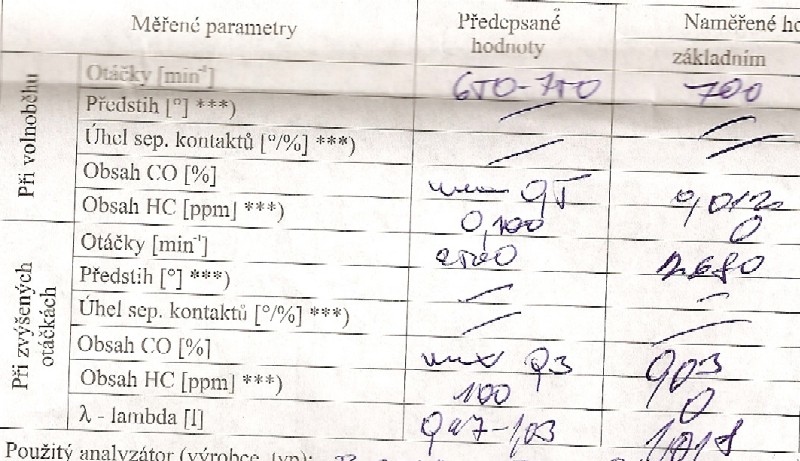 Měřené parametry Předepsané hodnoty Naměřené ho
základním
Při volnoběhu
Otáčky [min⁻¹] 650-750 700
Předstih [°] ***)
Úhel sep. kontaktů [°/%] ***)
Obsah CO [%] max 0,5 0,012
Obsah HC [ppm] ***) 0,100 0
Při zvýšených otáčkách
Otáčky [min⁻¹] 2680
Předstih [°] ***)
Úhel sep. kontaktů [°/%] ***)
Obsah CO [%] max 0,3 0,03
Obsah HC [ppm] ***) 100 0
λ - lambda [1] 0,97-1,03 1,018
Použitý analyzátor (výrobce, typ):